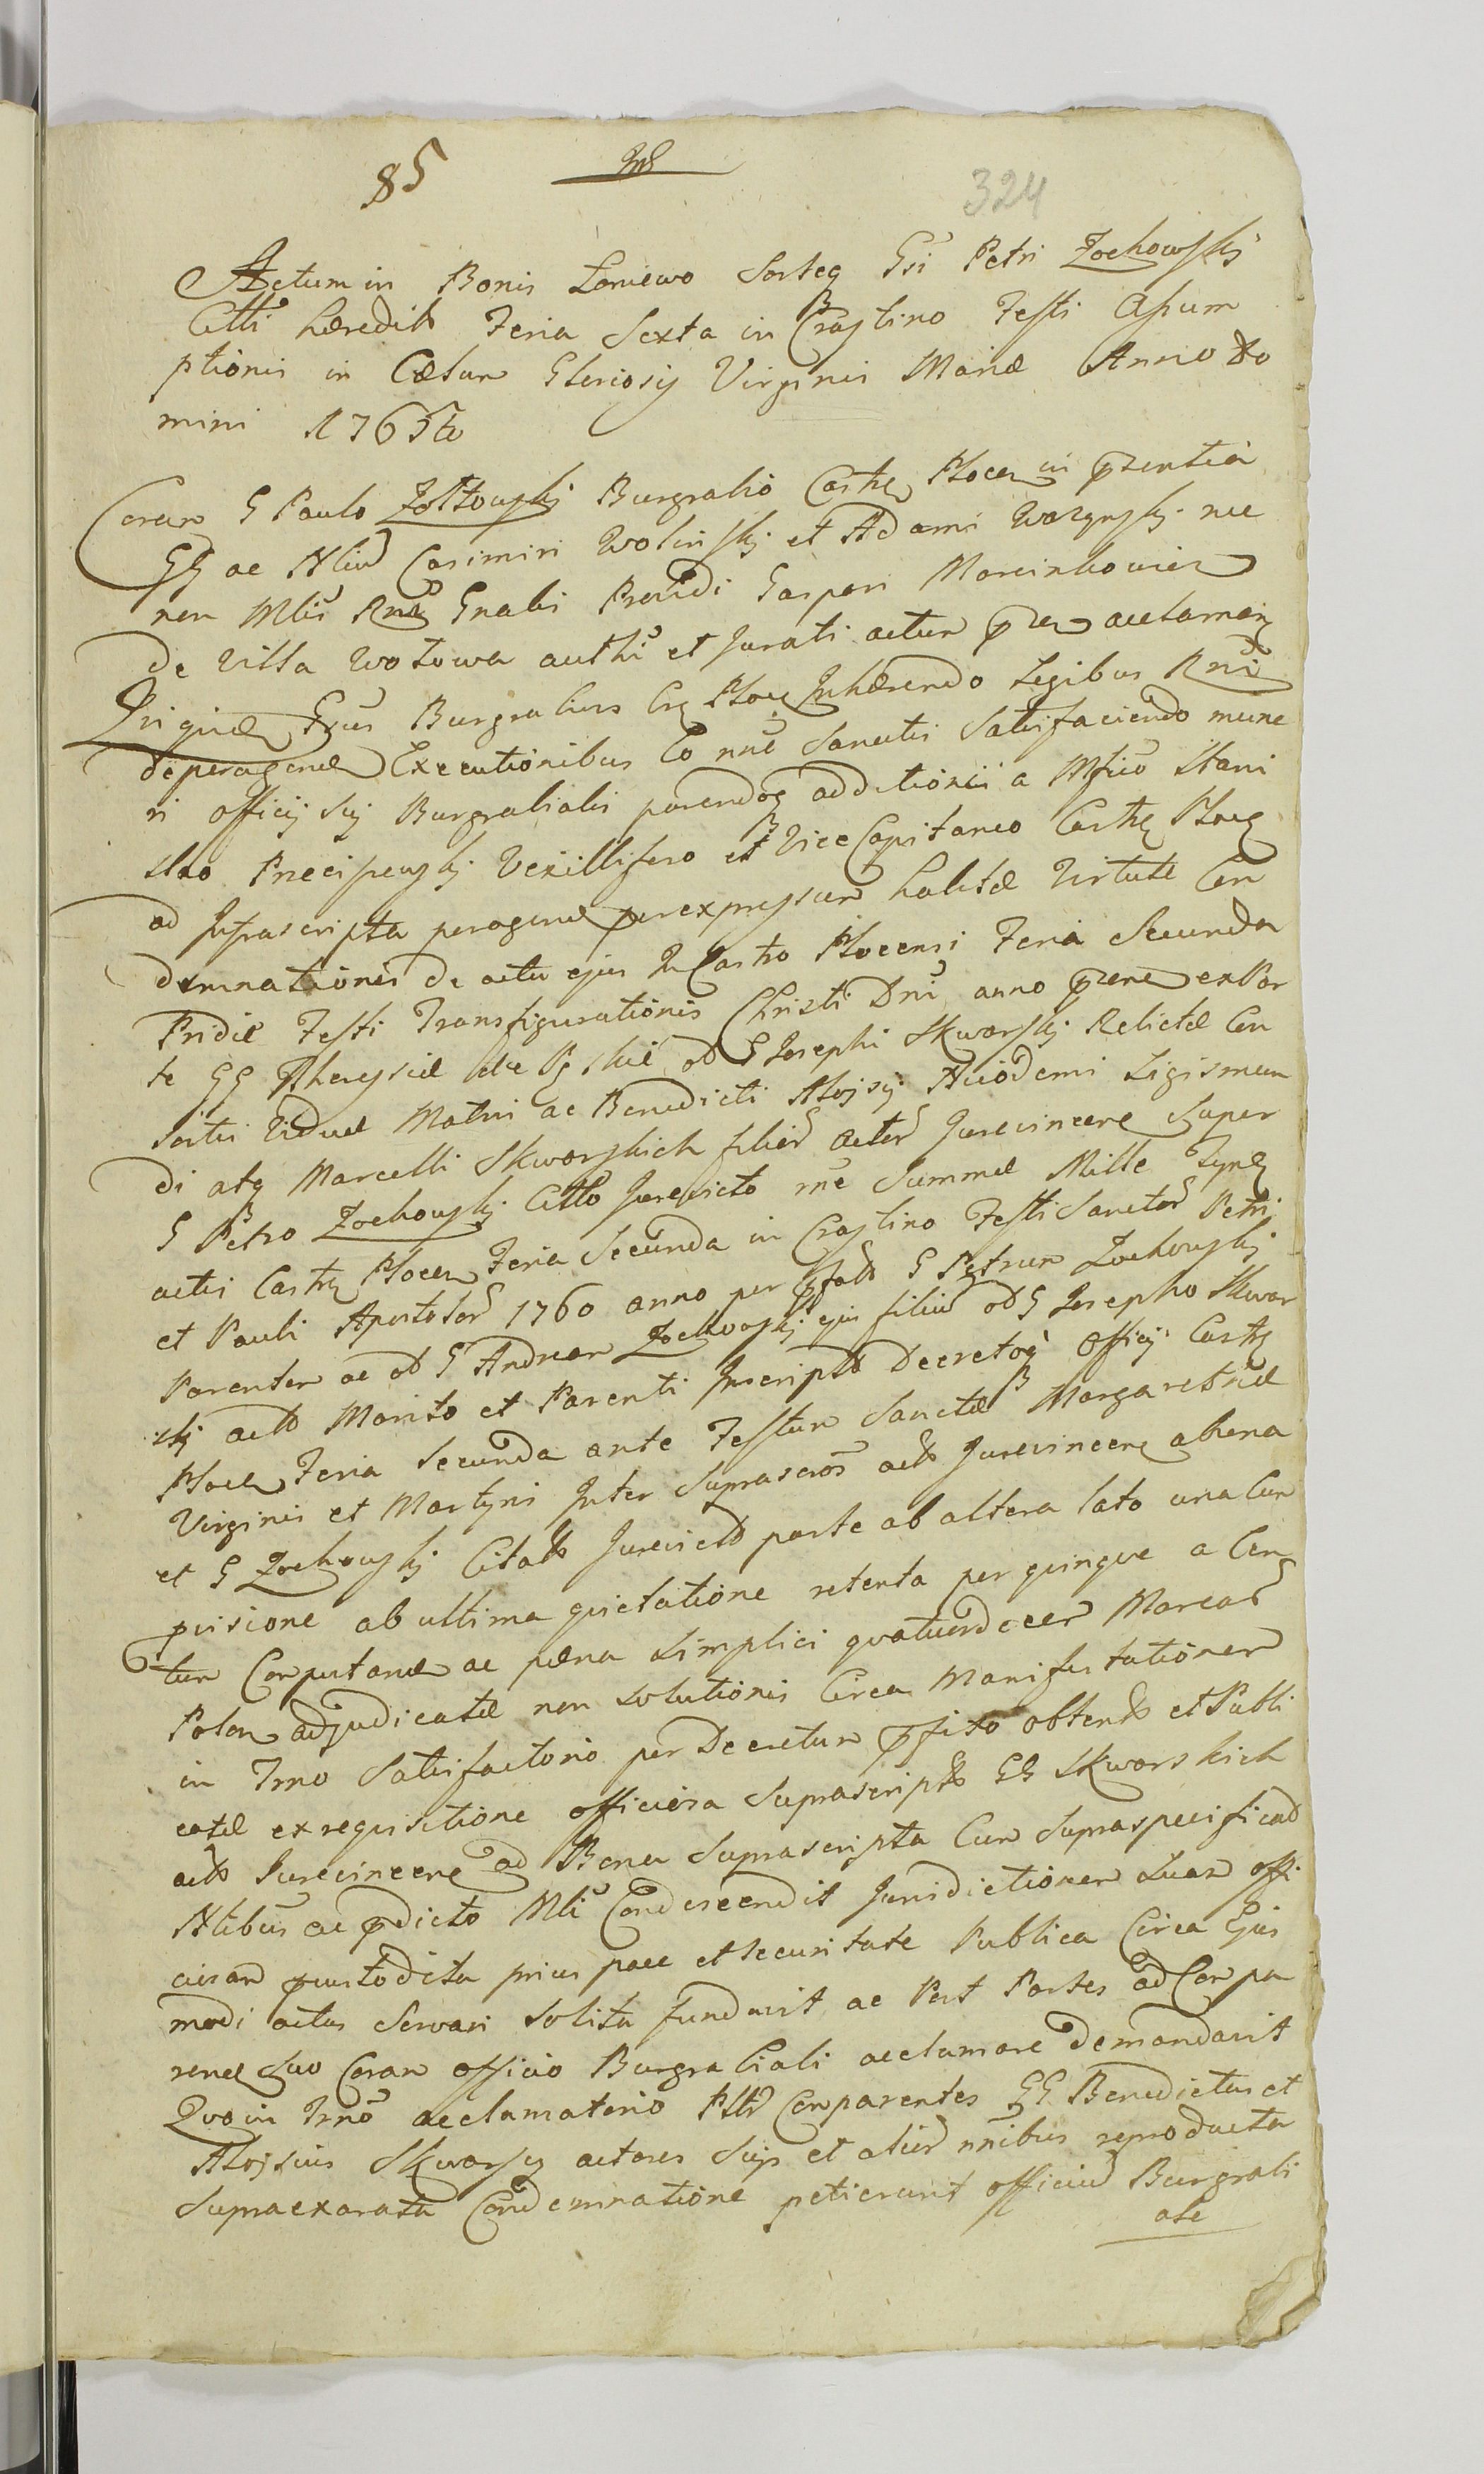 85
324
Actum in Bonis Łoniewo Sorteq Gsi Petri Zochowskj
Citti hæredits Feria Sexta in Crastino Festi Assum
ptionis in Cælum Gloriosę Virginis Mariæ Anno Do
mini 1765to
Coram G Paulo Zołtowskj Burgrabio Castrę Płocen in præsentia
GG ac Nlium Casimiri Wolinskj et Adami nec
non Mlis Rnę Gnalis Providi Gaspari Marcinkowicz
de Villa Wołowa authi et Jurati actum acclamanę
Isigitur Burgrabius Crę Płocę Inhærendo Legibus Rni
de peragend Executionibus Eo nne Sancitis Satisfaciendo mune
ri officij Sūj Burgrabialis parendoq additionii a Mfico Stani
slao Przeciszewskj Vexillifero et Vice Capitaneo Castrę Płocę
ad Infrascripta peragend per expressum habitæ Virtute Con
demnationis de actu ejus In Castro Płocensi Feria Secunda
Pridie Festi Transfigurationis Christi Dni anno præne ex Par
te GG Theresiæ de olim G Josephi Skwarskj Relictæ Con
sortis Viduæ Matris ac Benedicti Aloisij Nicodemi Sigismun
di atq Marcelli Skworskich filiorum actorum Jurevincene Super
G Petro Zochowskj Citto Jurevicto rne Summæ Mille Tynf
actis Castrę Płocen Feria Secunda in Crastino Festi Sanctorum Petri
et Pauli Apostolorum 1760 anno per G Petrum Zochowskj
Parentem ac olim G Andream Zochowskj ejus filium olim G Josepho Skwar
skj Marito et Parenti Inscripts Decretoq Officij Castrę
Płocen Feria Secunda ante Festum Sanctæ Margarethæ
Virginis et Martyris Inter Suprascros Jurevincene ab una
et G Zochowskj Citats Jurevicto parte ab altera lato una Cum
provisione ab ultima quietatione retenta per quinque a Cen
tum Computand ac pæna simplici quatuordecem Marcarum
Polon adjudicatæ non Solutionis Circa Manifestationem
in Trno Satisfactorio per Decretum obtents et Publi
catæ ex requisitione officiosa Suprascripts GG Skworskich
Jurevincene ad Bona Suprascripta Cum Supraspecificatis
Nlibus ac prædicto Mli Condescendit Jurisdictionem Suam offi
ciosam custodita prius pace et Securitate Publica Circa Ejus
modi actus Servari Solita fundavit ac Post Partes ad Compa
rend Suo Coram Officio Burgrabiali acclamare demandavit
Quo in Trno acclamatorio Comparentes GG Benedictus et
Aloisius Skworscy actores Suis et aliorum nnibus reproducta
Supra exarata Condemnatione petierunt officium Burgrabi
ale